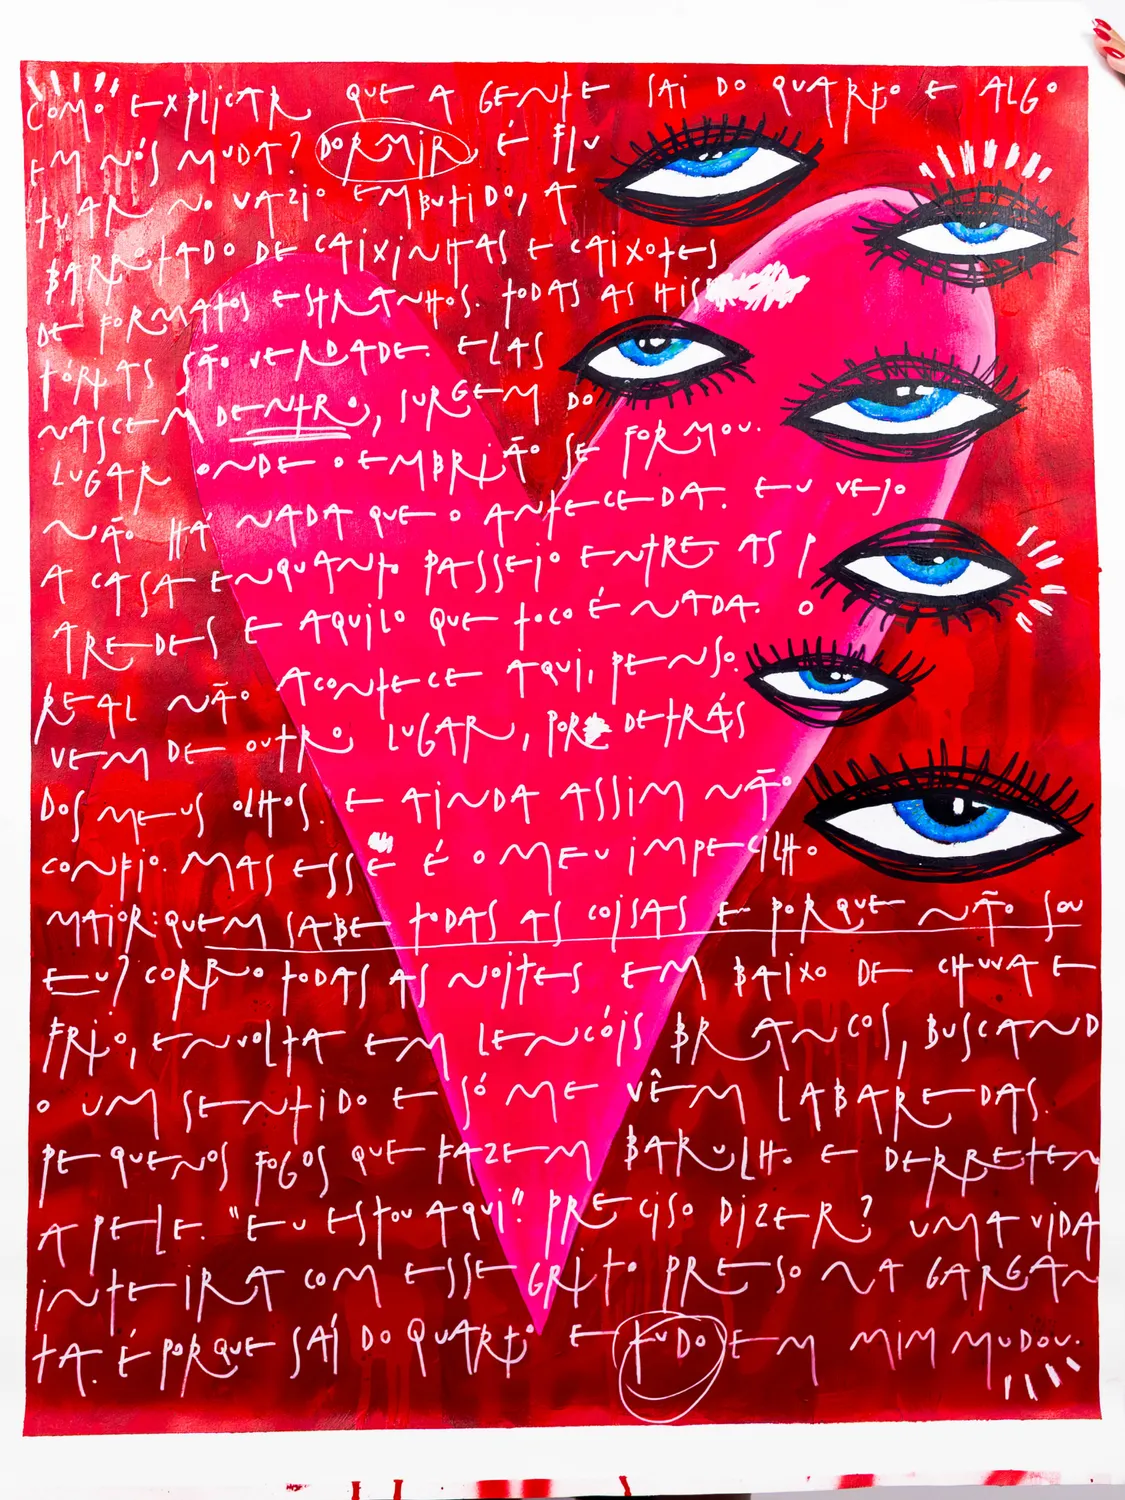 COMO EXPLICAR QUE A GENTE SAI DO QUARTO E ALGO
EM NÓS MUDA? DORMIR É FLU
TUAR NO VAZIO EMBUTIDO, A
BARROTADO DE CAIXINHAS E CAIXOTES
DE FORMATOS ESTRANHOS. TODAS AS HIS
TÓRIAS SÃO VERDADE. ELAS
NASCEM DENTRO, SURGEM DO
LUGAR ONDE O EMBRIÃO SE FORMOU.
NÃO HÁ NADA QUE O ANTECEDA. EU VEJO
A CASA ENQUANTO PASSEJO ENTRE AS P
AREDES E AQUILO QUE TOCO É NADA. O
REAL NÃO ACONTECE AQUI, PENSO.
VEM DE OUTRO LUGAR, POR DETRÁS
DOS MEUS OLHOS. E AINDA ASSIM NÃO
CONFIO. MAS ESSE É O MEU IMPECILHO
MAIOR: QUEM SABE TODAS AS COISAS E PORQUE NÃO SOU
EU? CORRO TODAS AS NOITES EM BAIXO DE CHUVA E
FRIO, ENVOLTA EM LENÇÓIS BRANCOS, BUSCAND
O UM SENTIDO E SÓ ME VÊM LABAREDAS.
PEQUENOS FOGOS QUE FAZEM BARULHO E DERRETEM
A PELE. "EU ESTOU AQUI". PRECISO DIZER? UMA VIDA
INTEIRA COM ESSE GRITO PRESO NA GARGAN
TA. É PORQUE SAÍ DO QUARTO E TUDO EM MIM MUDOU.